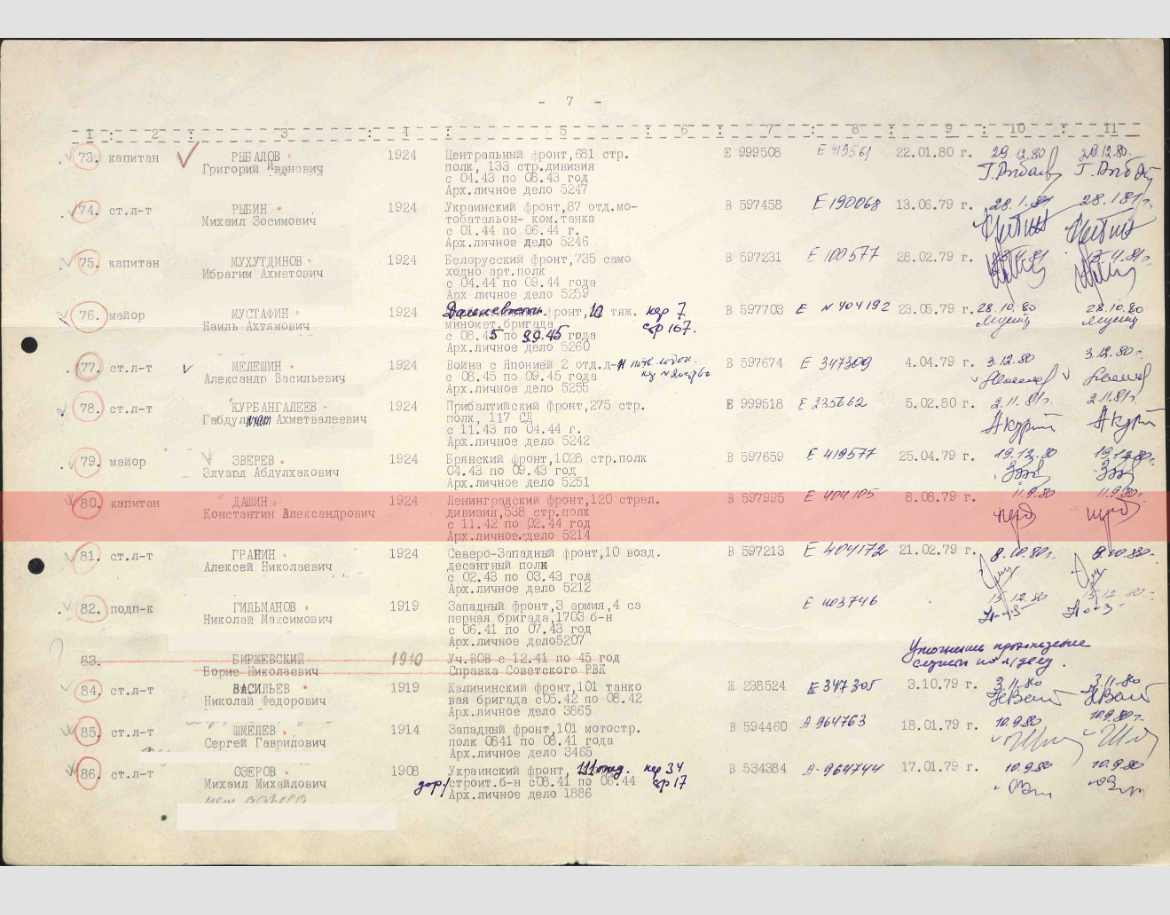 - 7 -
1 : 2 : 3 : 4 : 5 : 6 : 7 : 8 : 9 : 10 : 11
73. капитан РЫБАЛОВ 1924 Центральный фронт,681 стр. Е 999508 Е 419561 22.01.80 г. 29.12.80 29.12.80.
Григорий Иванович полк, 133 стр.дивизия
с 04.43 по 08.43 год
Арх.личное дело 5247
74. ст.л-т РЫБИН 1924 Украинский фронт,87 отд.мо- В 597458 Е 190068 13.06.79 г. 28.1.81 28.1.81г.
Михаил Зосимович тобатальон- ком.танка
с 01.44 по 06.44 г.
Арх.личное дело 5246
75. капитан МУХУТДИНОВ 1924 Белорусский фронт,735 само В 597231 Е 100577 28.02.79 г.
Ибрагим Ахметович ходно арт.полк
с 04.44 по 09.44 года
Арх личное дело 5259
76. майор МУСТАФИН 1924 фронт, 10 тяж. кор 7 В 597703 Е № 404192 23.05.79 г. 28.10.80 28.10.80
Наиль Ахтямович миномет.бригада стр 167.
с 08.45 по 9.9.45 года
Арх.личное дело 5260
77. ст.л-т МЕЛЕШИН 1924 Война с Японией 2 отд.д-н В 597674 Е 347309 4.04.79 г. 3.12.80 3.12.80
Александр Васильевич с 08.45 по 09.45 года
Арх.личное дело 5255
78. ст.л-т КУРБАНГАЛЕЕВ 1924 Прибалтийский фронт,275 стр. Е 999518 Е 235662 5.02.80 г. 2.11.81г. 2.11.81г.
Ахметвалеевич полк, 117 СД
с 11.43 по 04.44 г.
Арх.личное дело 5242
79. майор ЗВЕРЕВ 1924 Брянский фронт,1028 стр.полк В 597659 Е 419577 25.04.79 г. 19.12.80 19.12.80.
Эдуард Абдулхакович 04.43 по 09.43 год
Арх.личное дело 5251
80. капитан ДАШИН 1924 Ленинградский фронт,120 стрел. В 597995 Е 404105 8.08.79 г. 11.9.80 11.9.80.
Константин Александрович дивизия,538 стр.полк
с 11.42 по 02.44 год
Арх.личное.дело 5214
81. ст.л-т ГРАНИН 1924 Северо-Западный фронт,10 возд. В 597213 Е 404172 21.02.79 г. 8.10.80г. 8.10.80.
Алексей Николаевич десантный полк
с 02.43 по 03.43 год
Арх.личное дело 5212
82. подп-к ГИЛЬМАНОВ 1919 Западный фронт,3 армия,4 са Е 403746 15.12.80 15.12.80
Николай Максимович перная бригада,1703 б-н
с 06.41 по 07.43 год
Арх.личное дело5207
83. БИРЖЕВСКИЙ 1910 Уч.ВОВ с 12.41 по 45 год Уточнить прохождение
Борис Николаевич Справка Советского РВК службы по л/делу.
84. ст.л-т ВАСИЛЬЕВ 1919 Калининский фронт,101 танко Ж 238524 Е 347305 3.10.79 г. 3.11.80 3.11.80
Николай Федорович вая бригада с05.42 по 08.42
Арх.личное дело 3865
85. ст.л-т ШМЕЛЕВ 1914 Западный фронт,101 мотостр. В 594460 А 964763 18.01.79 г. 10.9.80 10.9.80г.
Сергей Гаврилович полк 0641 по 08.41 года
Арх.личное дело 3465
86. ст.л-т ОЗЕРОВ 1908 Украинский фронт, кор 34 В 534384 А-964744 17.01.79 г. 10.9.80 10.9.80
Михаил Михайлович строит.б-н с08.41 по 08.44 стр 17
Арх.личное дело 1886